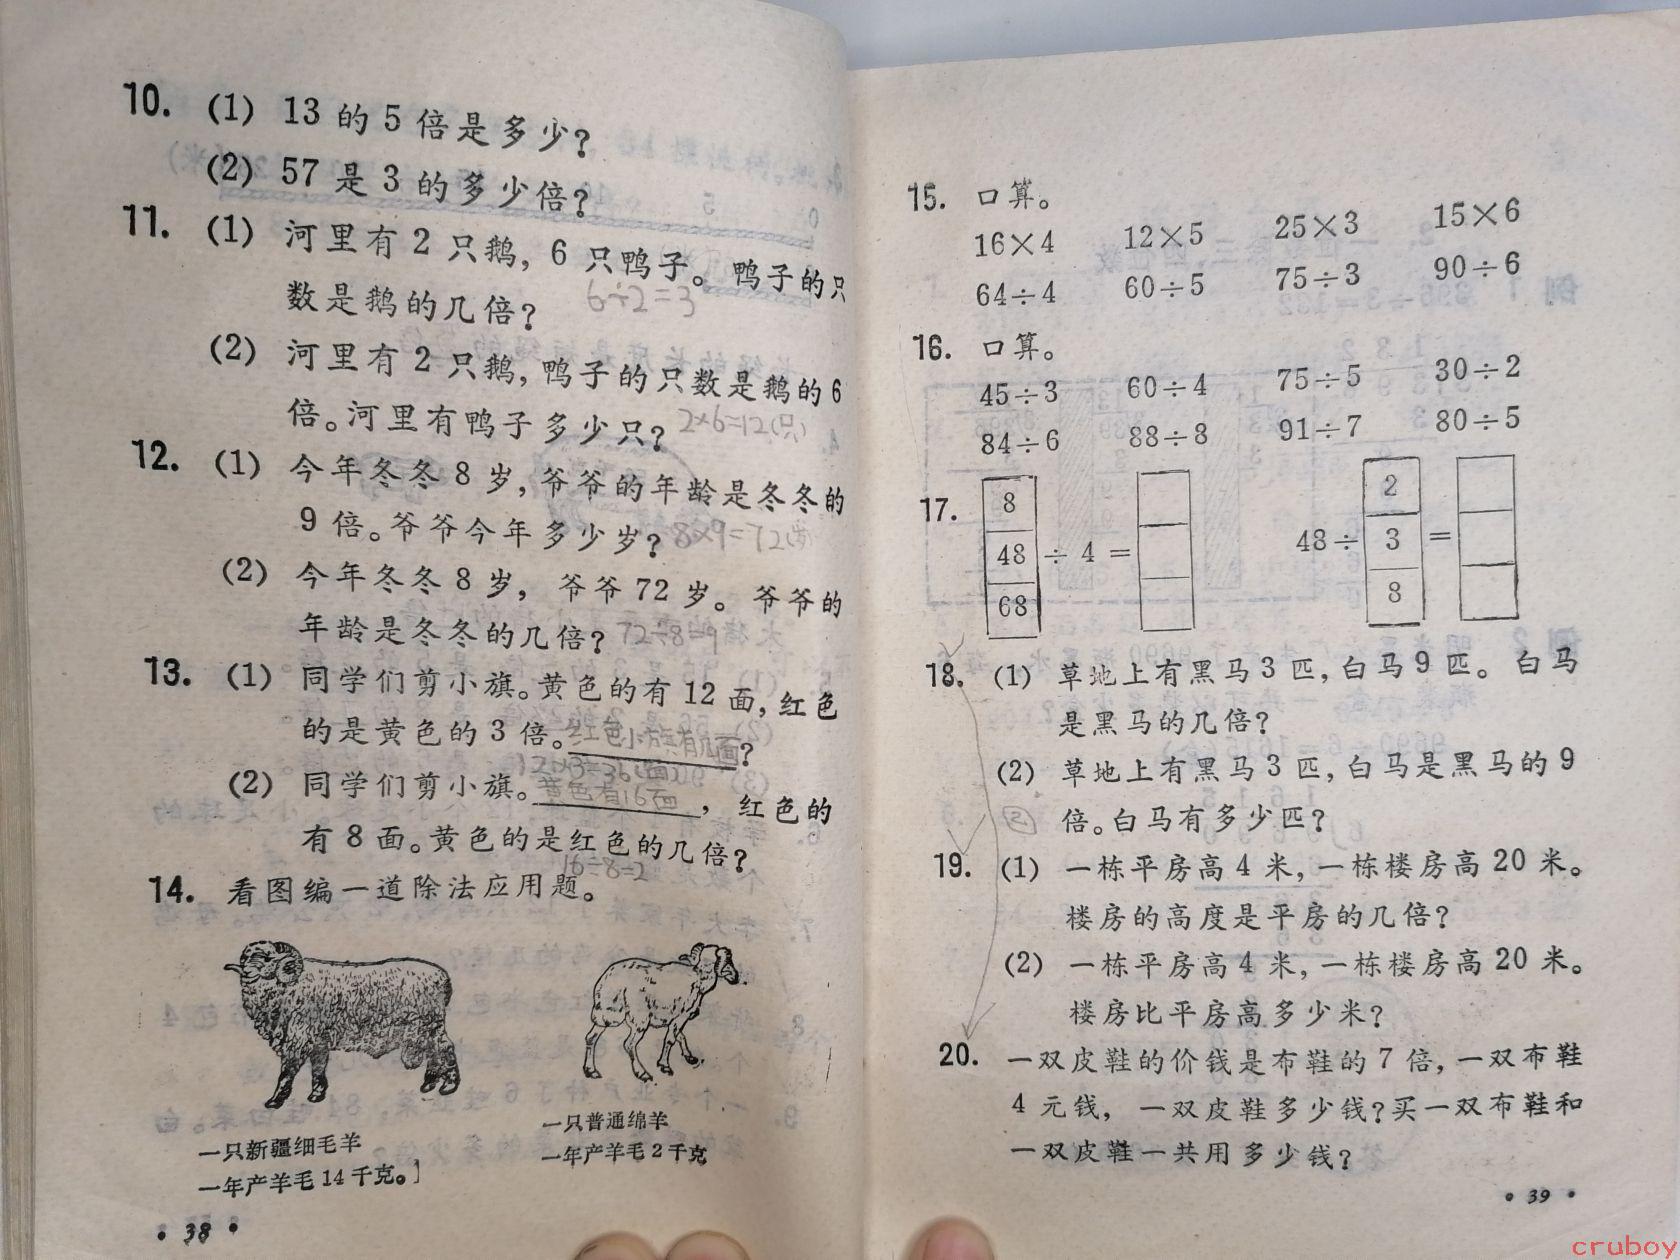 10. (1) 13 的 5 倍是多少?
(2) 57 是 3 的多少倍?
11. (1) 河里有 2 只鹅, 6 只鸭子。鸭子的只
数是鹅的几倍? 6÷2=3
(2) 河里有 2 只鹅, 鸭子的只数是鹅的 6
倍。河里有鸭子多少只? 2×6=12(只)
12. (1) 今年冬冬 8 岁, 爷爷的年龄是冬冬的
9 倍。爷爷今年多少岁? 8×9=72
(2) 今年冬冬 8 岁, 爷爷 72 岁。爷爷的
年龄是冬冬的几倍? 72÷8=9
13. (1) 同学们剪小旗。黄色的有 12 面, 红色
的是黄色的 3 倍。红色小旗有几面?
12×3=36(面)
(2) 同学们剪小旗。黄色有16面, 红色的
有 8 面。黄色的是红色的几倍?
16÷8=2
14. 看图编一道除法应用题。
一只新疆细毛羊
一年产羊毛 14 千克。
一只普通绵羊
一年产羊毛 2 千克
• 38 •
15. 口算。
16×4 12×5 25×3 15×6
64÷4 60÷5 75÷3 90÷6
16. 口算。
45÷3 60÷4 75÷5 30÷2
84÷6 88÷8 91÷7 80÷5
17.
8
48 ÷ 4 =
68
2
48÷ 3 =
8
18. (1) 草地上有黑马 3 匹, 白马 9 匹。白马
是黑马的几倍?
(2) 草地上有黑马 3 匹, 白马是黑马的 9
倍。白马有多少匹?
19. (1) 一栋平房高 4 米, 一栋楼房高 20 米。
楼房的高度是平房的几倍?
(2) 一栋平房高 4 米, 一栋楼房高 20 米。
楼房比平房高多少米?
20. 一双皮鞋的价钱是布鞋的 7 倍, 一双布鞋
4 元钱, 一双皮鞋多少钱? 买一双布鞋和
一双皮鞋一共用多少钱?
• 39 •
cruboy